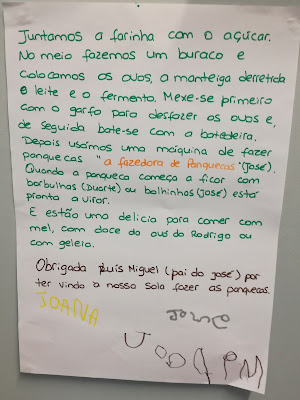 Juntamos a farinha com o açúcar.
No meio fazemos um buraco e
colocamos os ovos, a manteiga derretida
e leite e o fermento. Mexe-se primeiro
com o garfo para desfazer os ovos e,
de seguida bate-se com a batedeira.
Depois usámos uma máquina de fazer
panquecas "a fazedora de Panquecas" (José).
Quando a panqueca começa a ficar com
borbulhas (Duarte) ou bolhinhas (José) está
pronta a virar.
E estão uma delicia para comer com
mel, com doce da avó do Rodrigo ou
com geleia.
Obrigada Luís Miguel (pai do José) por
ter vindo à nossa sala fazer as panquecas.
JOANA